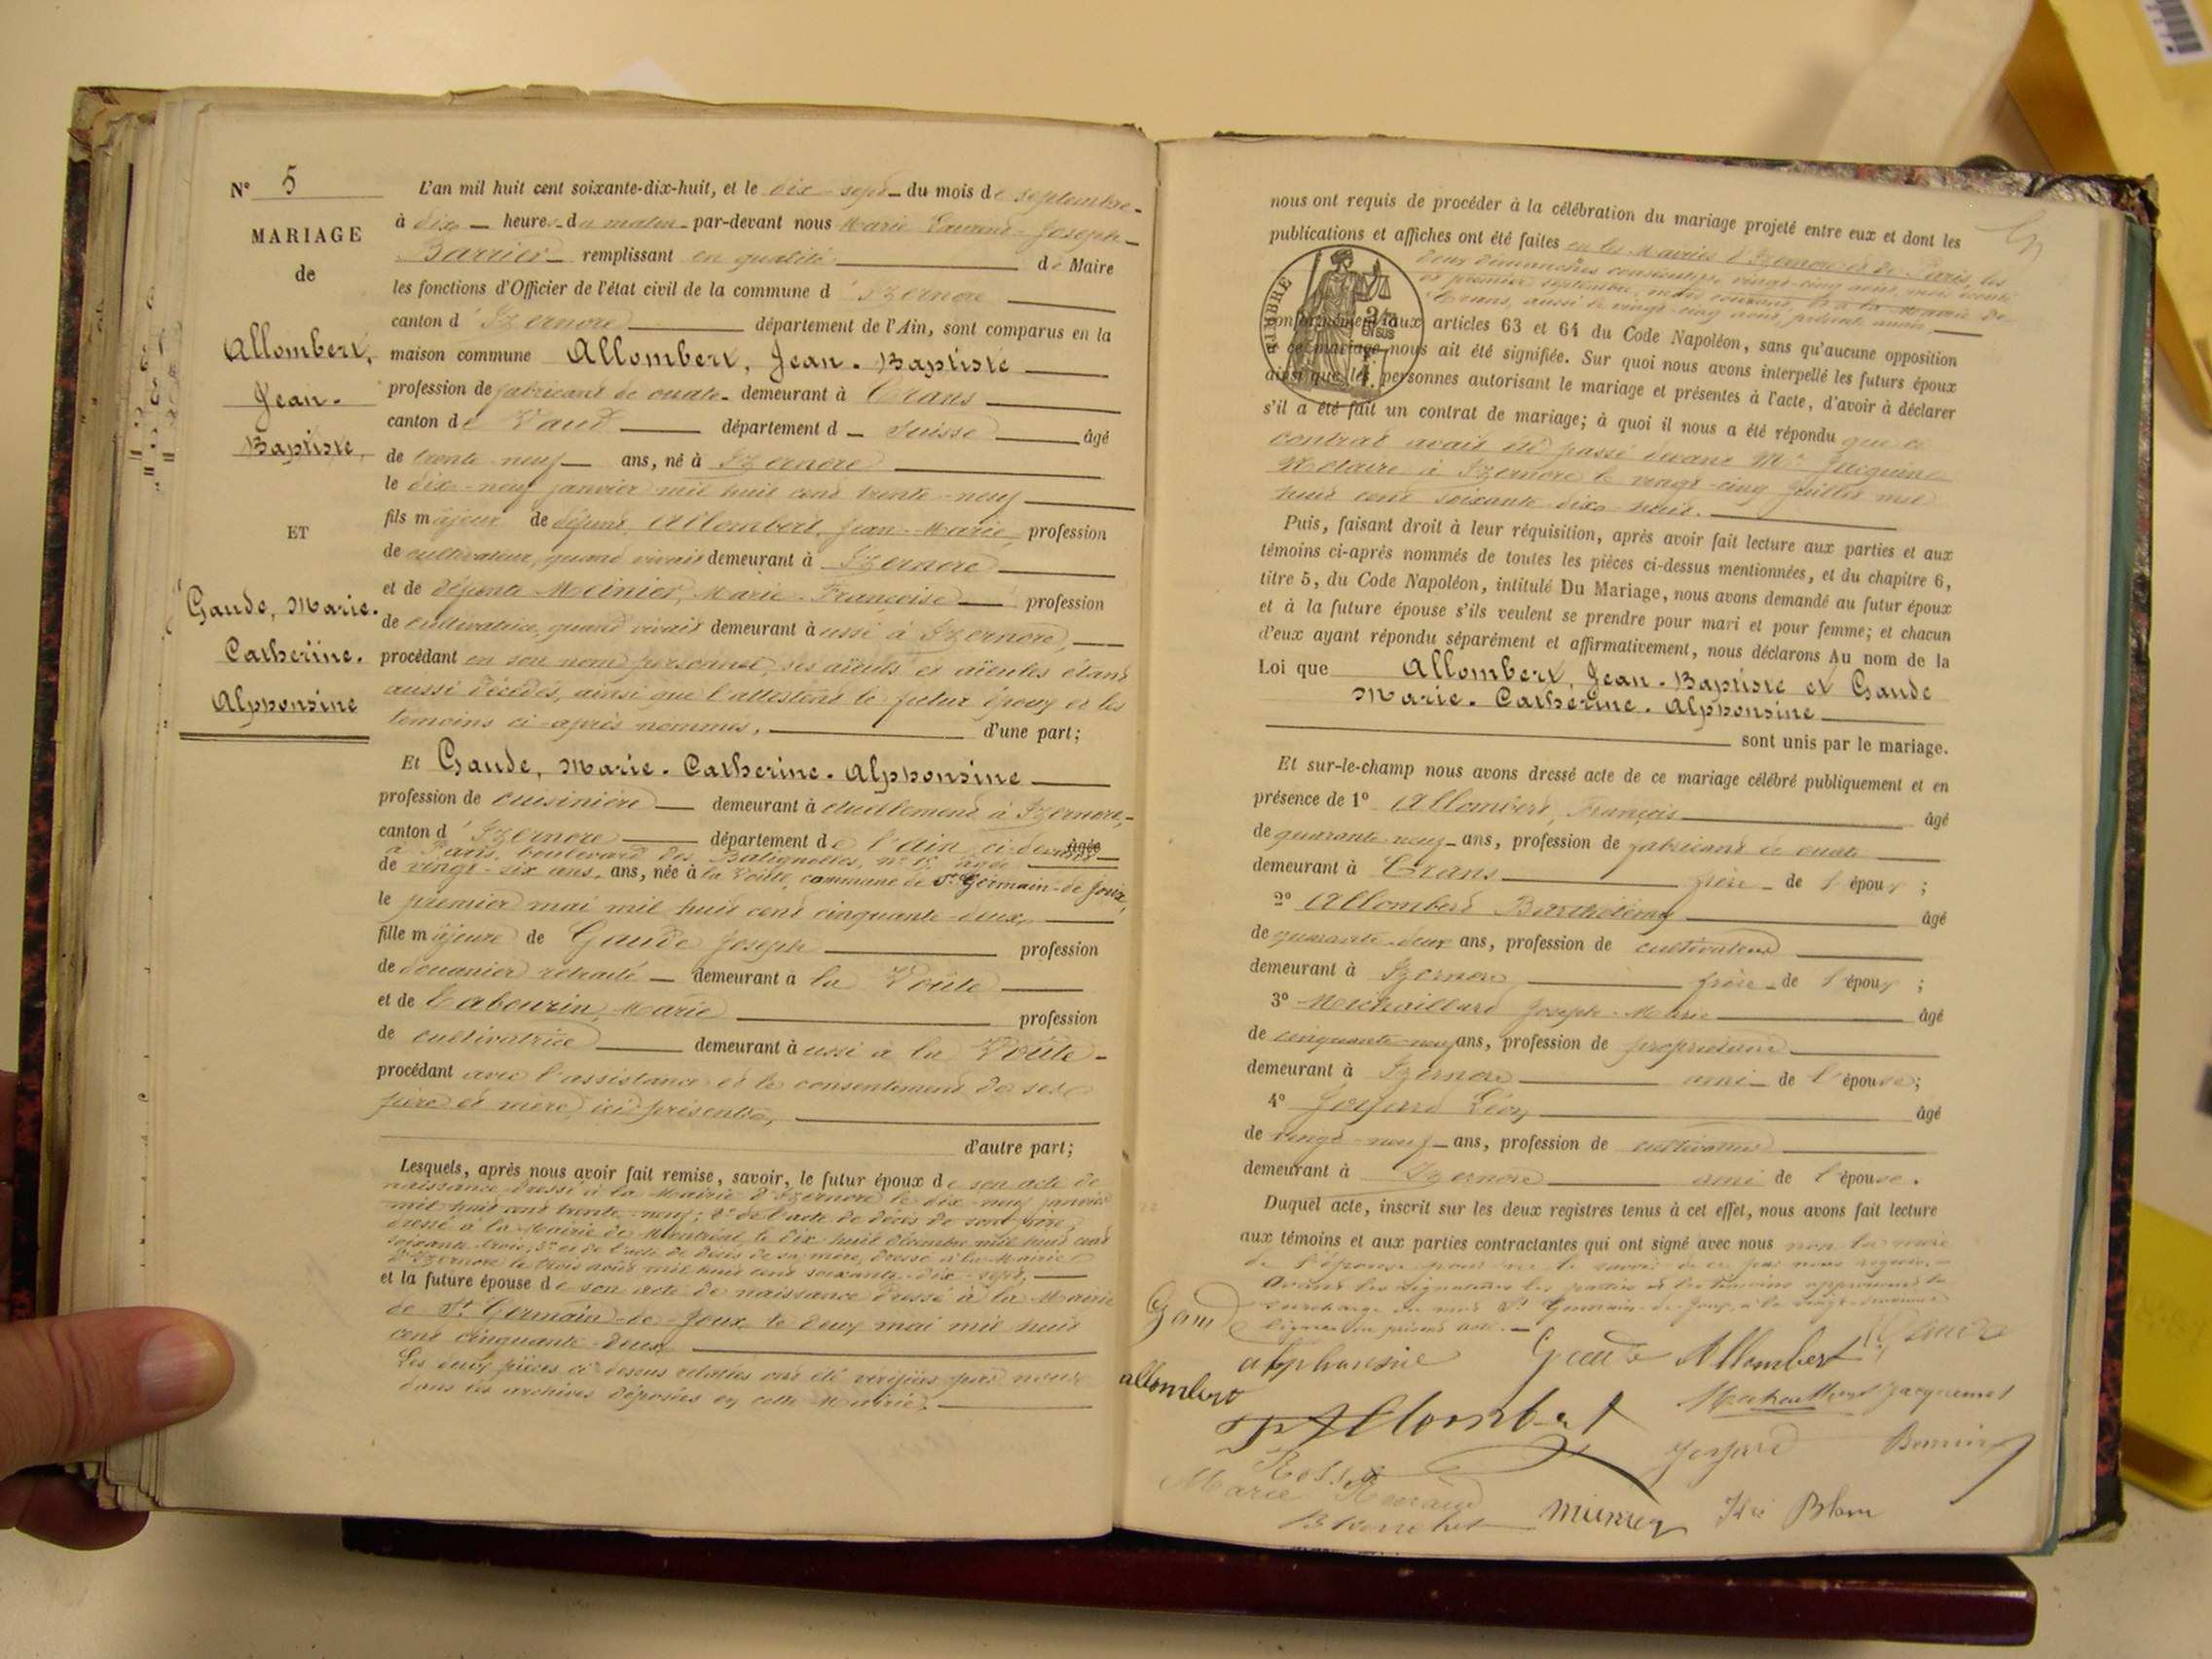 N° 5
MARIAGE
de
Allombert,
Jean-
Baptiste,
ET
Gaude, Marie-
Catherine-
Alphonsine
L'an mil huit cent soixante-dix-huit, et le dix-sept du mois de septembre
à dix heures du matin par-devant nous Marie Laurent-Joseph
Barrier remplissant en qualité de Maire
les fonctions d'Officier de l'état civil de la commune d'Izernore
canton d'Izernore département de l'Ain, sont comparus en la
maison commune Allombert, Jean-Baptiste
profession de fabricant de ouate demeurant à Crans
canton de Vaud département d Suisse âgé
de trente-neuf ans, né à Izernore
le dix-neuf janvier mil huit cent trente-neuf
fils majeur de défunt Allombert, Jean-Marie, profession
de cultivateur, quand vivait demeurant à Izernore
et de défunte Meinier, Marie-Françoise profession
de cultivatrice, quand vivait demeurant aussi à Izernore,
procédant en son nom personnel, ses aïeuls et aïeules étant
aussi décédés, ainsi que l'attestent le futur époux et les
témoins ci-après nommés, d'une part;
Et Gaude, Marie-Catherine-Alphonsine
profession de cuisinière demeurant actuellement à Izernore,
canton d'Izernore département de l'Ain, ci-devant âgée
à Paris, boulevard des Batignolles, n° âgée
de vingt-six ans, ans, née à la Voûte, commune de St Germain-de-Joux,
le premier mai mil huit cent cinquante-deux,
fille majeure de Gaude Joseph profession
de douanier retraité demeurant à la Voûte
et de Tabourin, Marie profession
de cultivatrice demeurant aussi à la Voûte
procédant avec l'assistance et le consentement de ses
père et mère, ici présents,
d'autre part;
Lesquels, après nous avoir fait remise, savoir, le futur époux de son acte de
naissance dressé à la Mairie d'Izernore le dix-neuf janvier
mil huit cent trente-neuf; 2° de l'acte de décès de son père,
dressé à la Mairie de Montréal le dix huit décembre mil huit cent
soixante-trois; 3° et de l'acte de décès de sa mère, dressé à la Mairie
d'Izernore le trois août mil huit cent soixante-dix-sept,
et la future épouse de son acte de naissance dressé à la Mairie
de St Germain-de-Joux le deux mai mil huit
cent cinquante-deux,
Les deux pièces ci-dessus relatées ont été vérifiées par nous
dans les archives déposées en cette Mairie.
nous ont requis de procéder à la célébration du mariage projeté entre eux et dont les
publications et affiches ont été faites en les Mairies d'Izernore et de Paris, les
deux dimanches consécutifs, vingt-cinq août, mois écoulé
et premier septembre, mois courant, et à la Mairie de
Crans, aussi le vingt-cinq août, présente année,
TIMBRE
EN SUS
conformément aux articles 63 et 64 du Code Napoléon, sans qu'aucune opposition
à ce mariage nous ait été signifiée. Sur quoi nous avons interpellé les futurs époux
ainsi que les personnes autorisant le mariage et présentes à l'acte, d'avoir à déclarer
s'il a été fait un contrat de mariage; à quoi il nous a été répondu que ce
contrat avait été passé devant Me
Notaire à Izernore le vingt-cinq juillet mil
huit cent soixante-dix-huit.
Puis, faisant droit à leur réquisition, après avoir fait lecture aux parties et aux
témoins ci-après nommés de toutes les pièces ci-dessus mentionnées, et du chapitre 6,
titre 5, du Code Napoléon, intitulé Du Mariage, nous avons demandé au futur époux
et à la future épouse s'ils veulent se prendre pour mari et pour femme; et chacun
d'eux ayant répondu séparément et affirmativement, nous déclarons Au nom de la
Loi que Allombert, Jean-Baptiste et Gaude
Marie-Catherine-Alphonsine
sont unis par le mariage.
Et sur-le-champ nous avons dressé acte de ce mariage célébré publiquement et en
présence de 1° Allombert, François âgé
de quarante-neuf ans, profession de fabricant de ouate
demeurant à Crans frère de l'époux;
2° Allombert Barthélemy âgé
de quarante-deux ans, profession de cultivateur
demeurant à Izernore frère de l'époux;
3° Michaillard Joseph-Marie âgé
de cinquante-neuf ans, profession de propriétaire
demeurant à Izernore ami de l'épouse;
4° Goyard Léon âgé
de vingt-neuf ans, profession de cultivateur
demeurant à Izernore ami de l'épouse.
Duquel acte, inscrit sur les deux registres tenus à cet effet, nous avons fait lecture
aux témoins et aux parties contractantes qui ont signé avec nous non la mère
de l'épouse pour ne le savoir de ce par nous requise.
Avant les signatures les parties et les témoins approuvent la
surcharge du mot St Germain-de-Joux, à la vingt-
ligne du présent acte.
Gaude
alphonsine Gaude Allombert
allombert
Allombert
Michaillard Jacquemet
Goyard
Rosse
Marie
munier Blanc